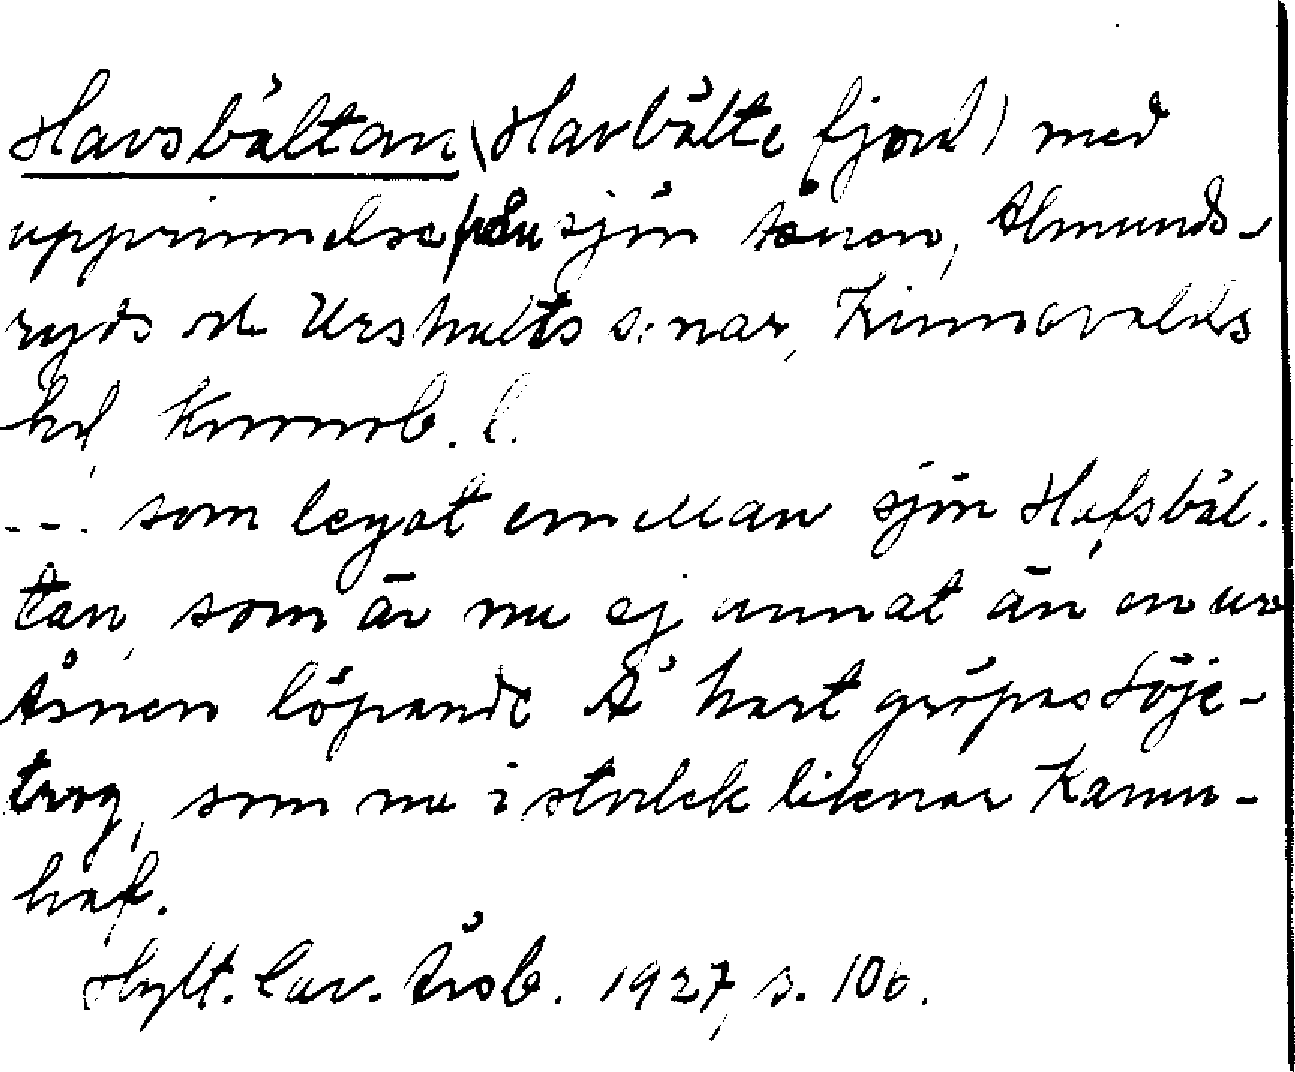 Havsbältan (Havbälte fjord) med
upprinnelse från sjön Åsnen, Almunds-
ryds och Urshults s:nar, Kinnevalds
hd, Kronob. l.
--- som legat emellan sjön Hafsbäl-
tan, som är nu ej annat än en ur
Åsnen löpande Å hart
trog, som nu i storlek liknar
haf.
Hylt. Cav. Årsb. 1927, s. 106.